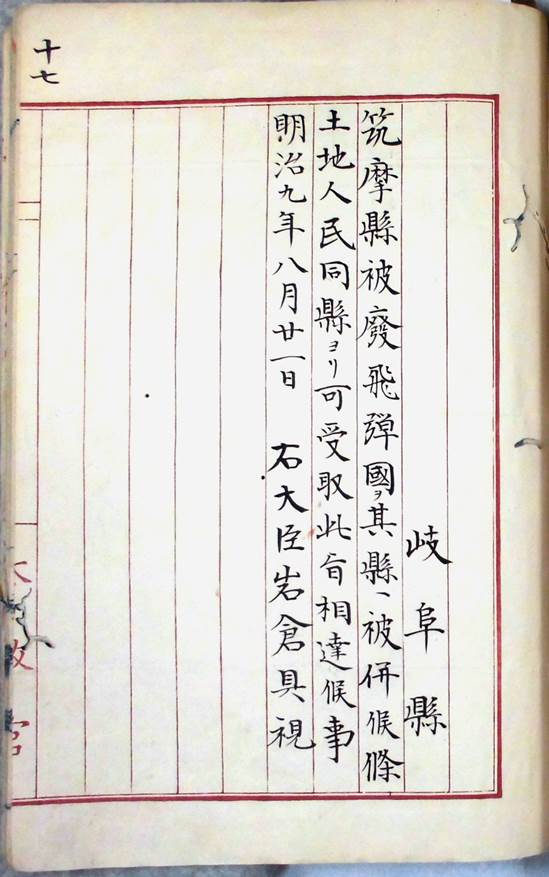 十七
岐阜縣
筑摩縣被廢飛彈國ヲ其縣ヘ被併候條
土地人民同縣ヨリ可受取此旨相達候事
明治九年八月廿一日 右大臣岩倉具視
政官